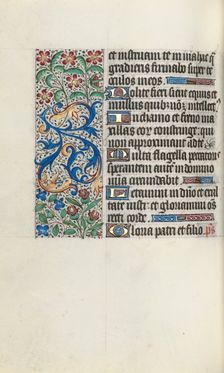 et instruam te in via hac qua
gradieris firmabo super te
oculos meos.
Nolite fieri sicut equus et
mulus quibus non est intellectus
In chamo et freno ma
xillas eor constringe qui
non approximant ad te
Multa flagella peccatoris
sperantem autem in domino
mīa circundabit
Letamini in dño et exul
tate iusti et gloriamini oēs
recti corde
Gloria patri et filio. ps